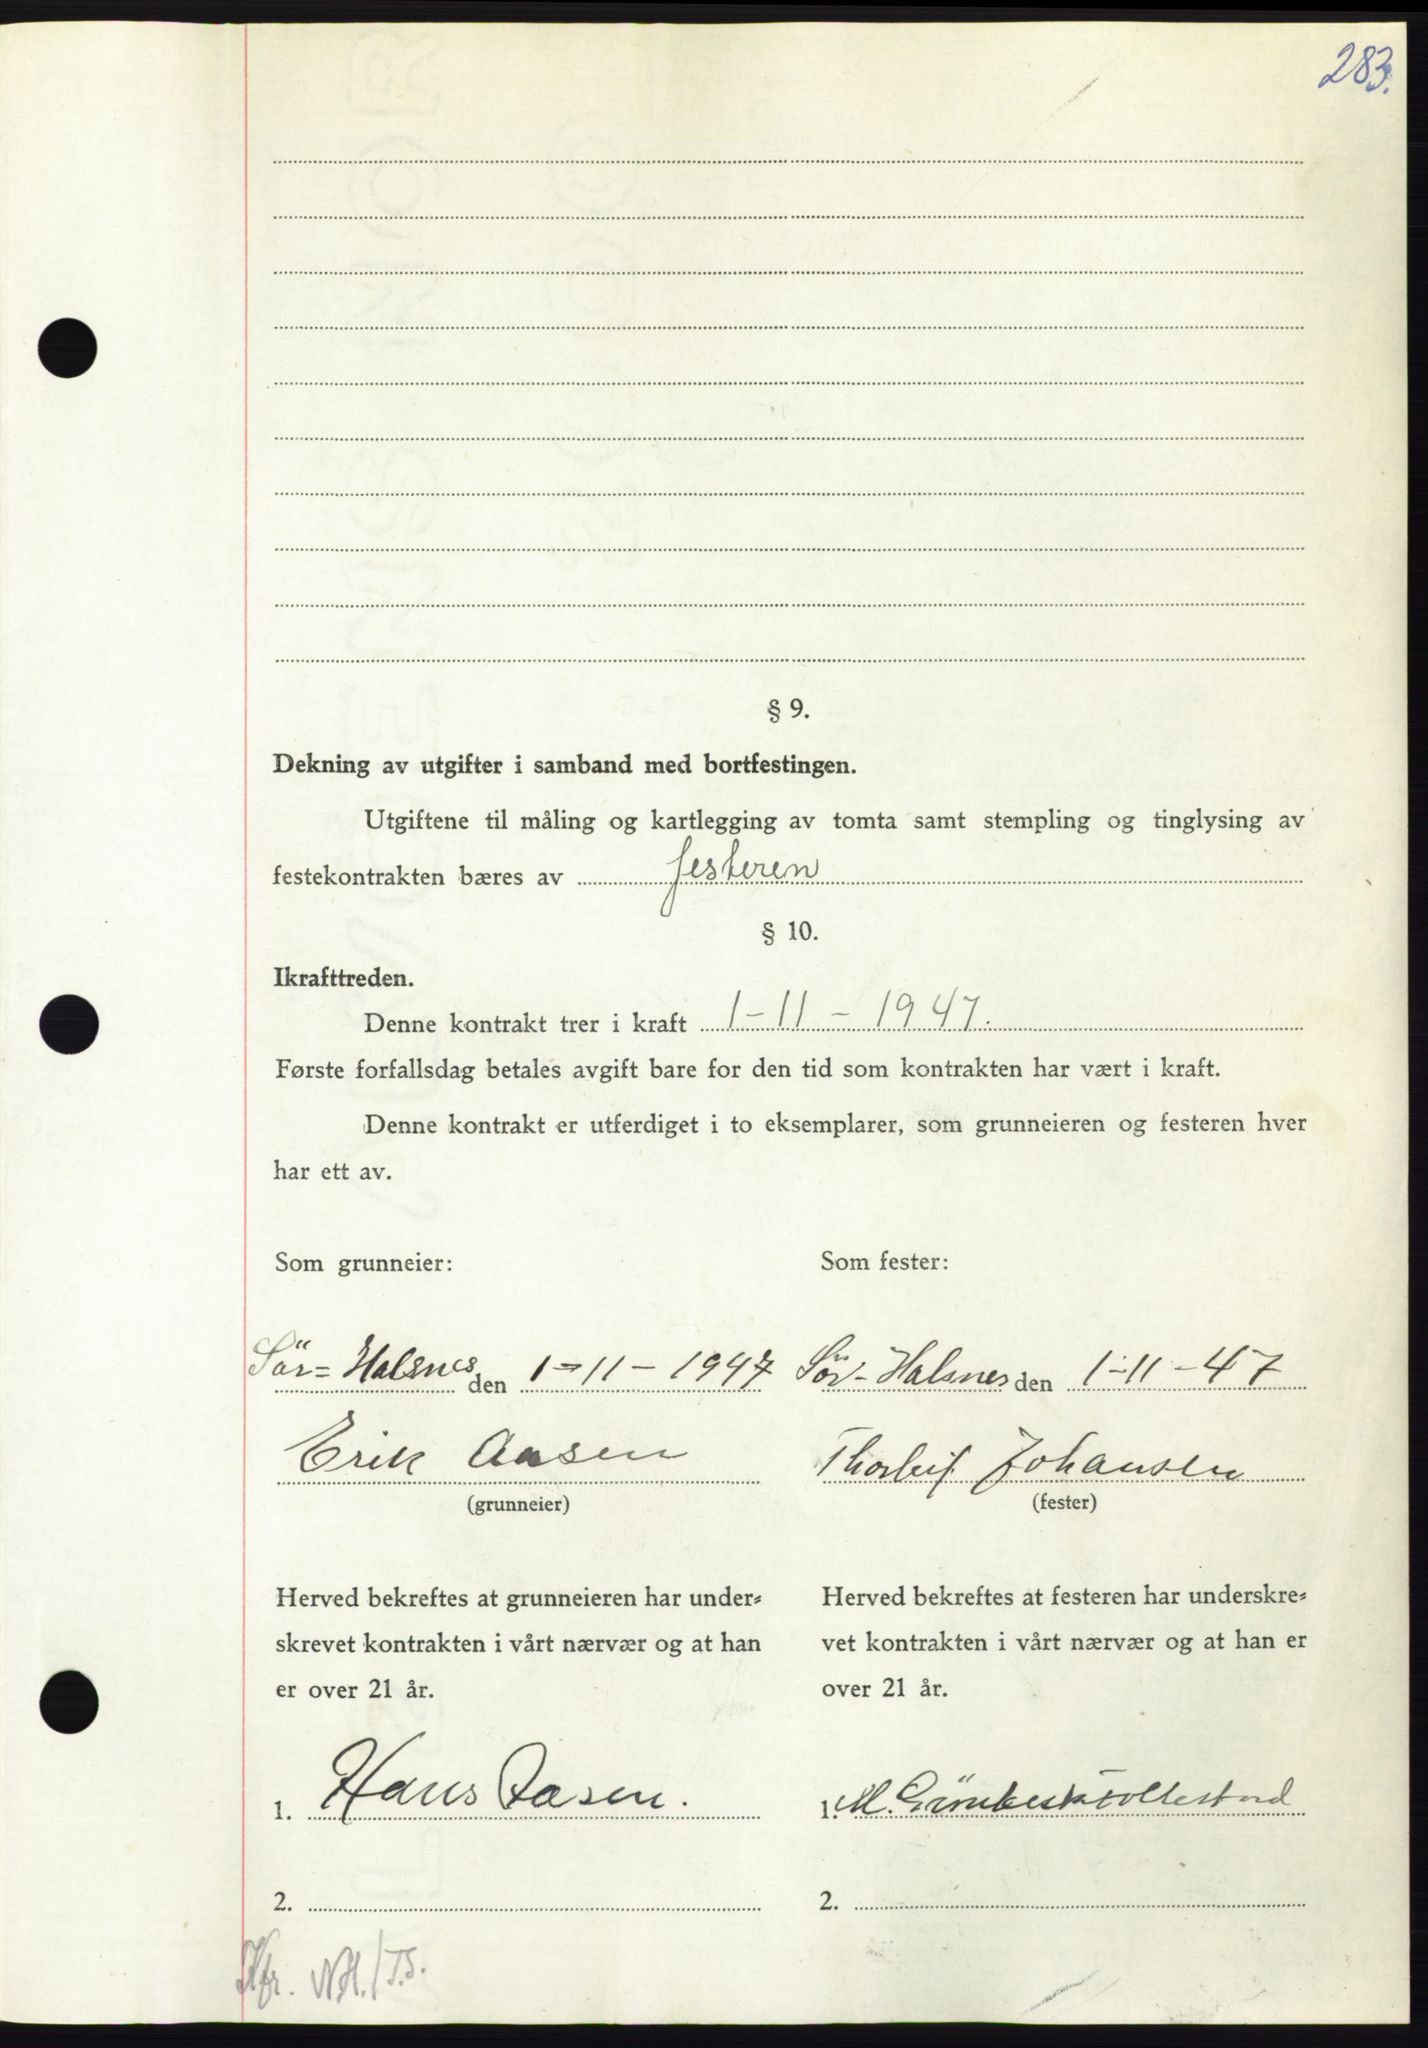 283.
§ 9.
Dekning av utgifter i samband med bortfestingen.
Utgiftene til måling og kartlegging av tomta samt stempling og tinglysing av
festekontrakten bæres av festeren
§ 10.
Ikrafttreden.
Denne kontrakt trer i kraft 1-11-1947.
Første forfallsdag betales avgift bare for den tid som kontrakten har vært i kraft.
Denne kontrakt er utferdiget i to eksemplarer, som grunneieren og festeren hver
har ett av.
Som grunneier: Som fester:
Sör-Halsnes den 1-11-1947 Sör-Halsnes den 1-11-47
Erik Aasen Thorleif Johansen
(grunneier) (fester)
Herved bekreftes at grunneieren har under- Herved bekreftes at festeren har underskre-
skrevet kontrakten i vårt nærvær og at han vet kontrakten i vårt nærvær og at han er
er over 21 år. over 21 år.
1. Hans Aasen. 1. M.
2. 2.
Kfr. NH./T.S.